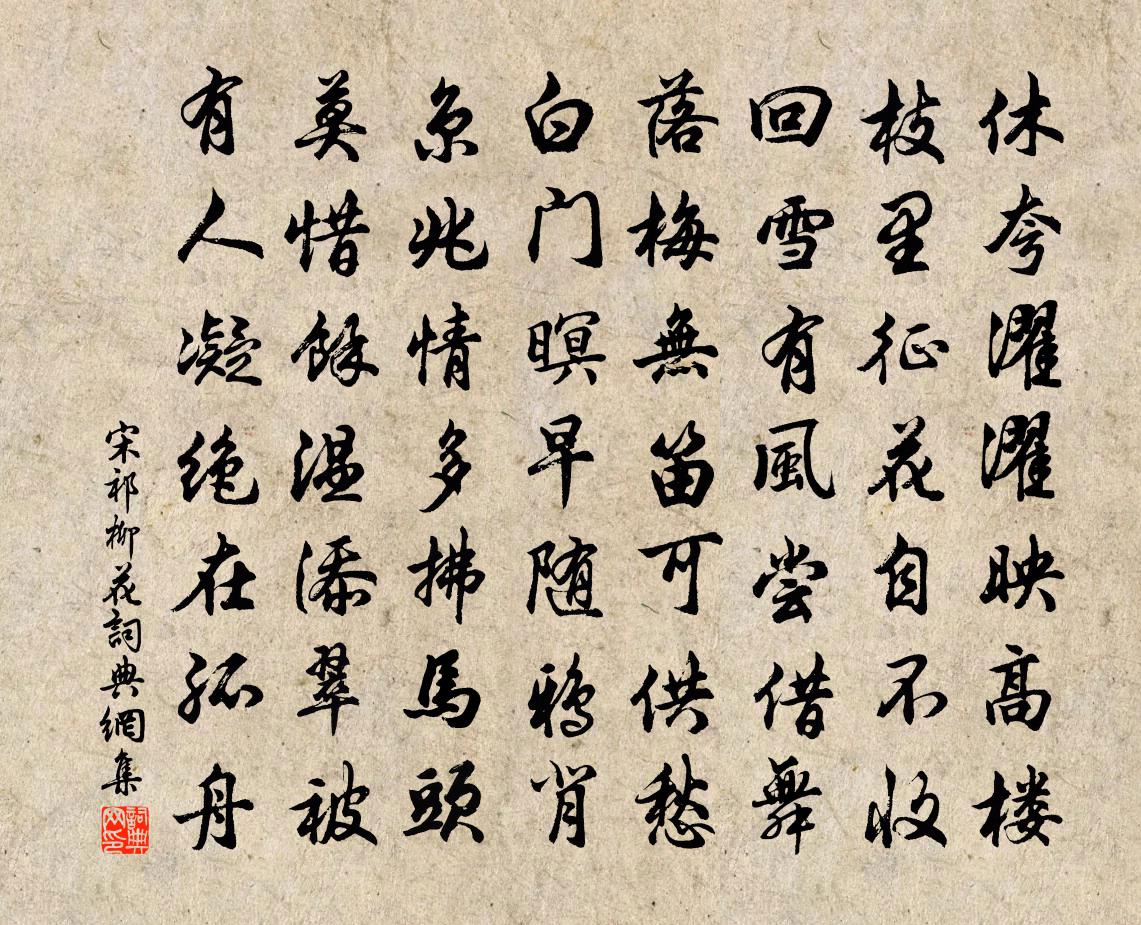 休夸濯濯映高楼
枝里征花自不收
回雪有風尝借舞
落梅無笛可供愁
白门暝早随鸦肖
京兆情多拂馬頭
莫惜餘温添翠被
有人凝绝在孤舟
宋祁柳花詞典網集
詞典网印